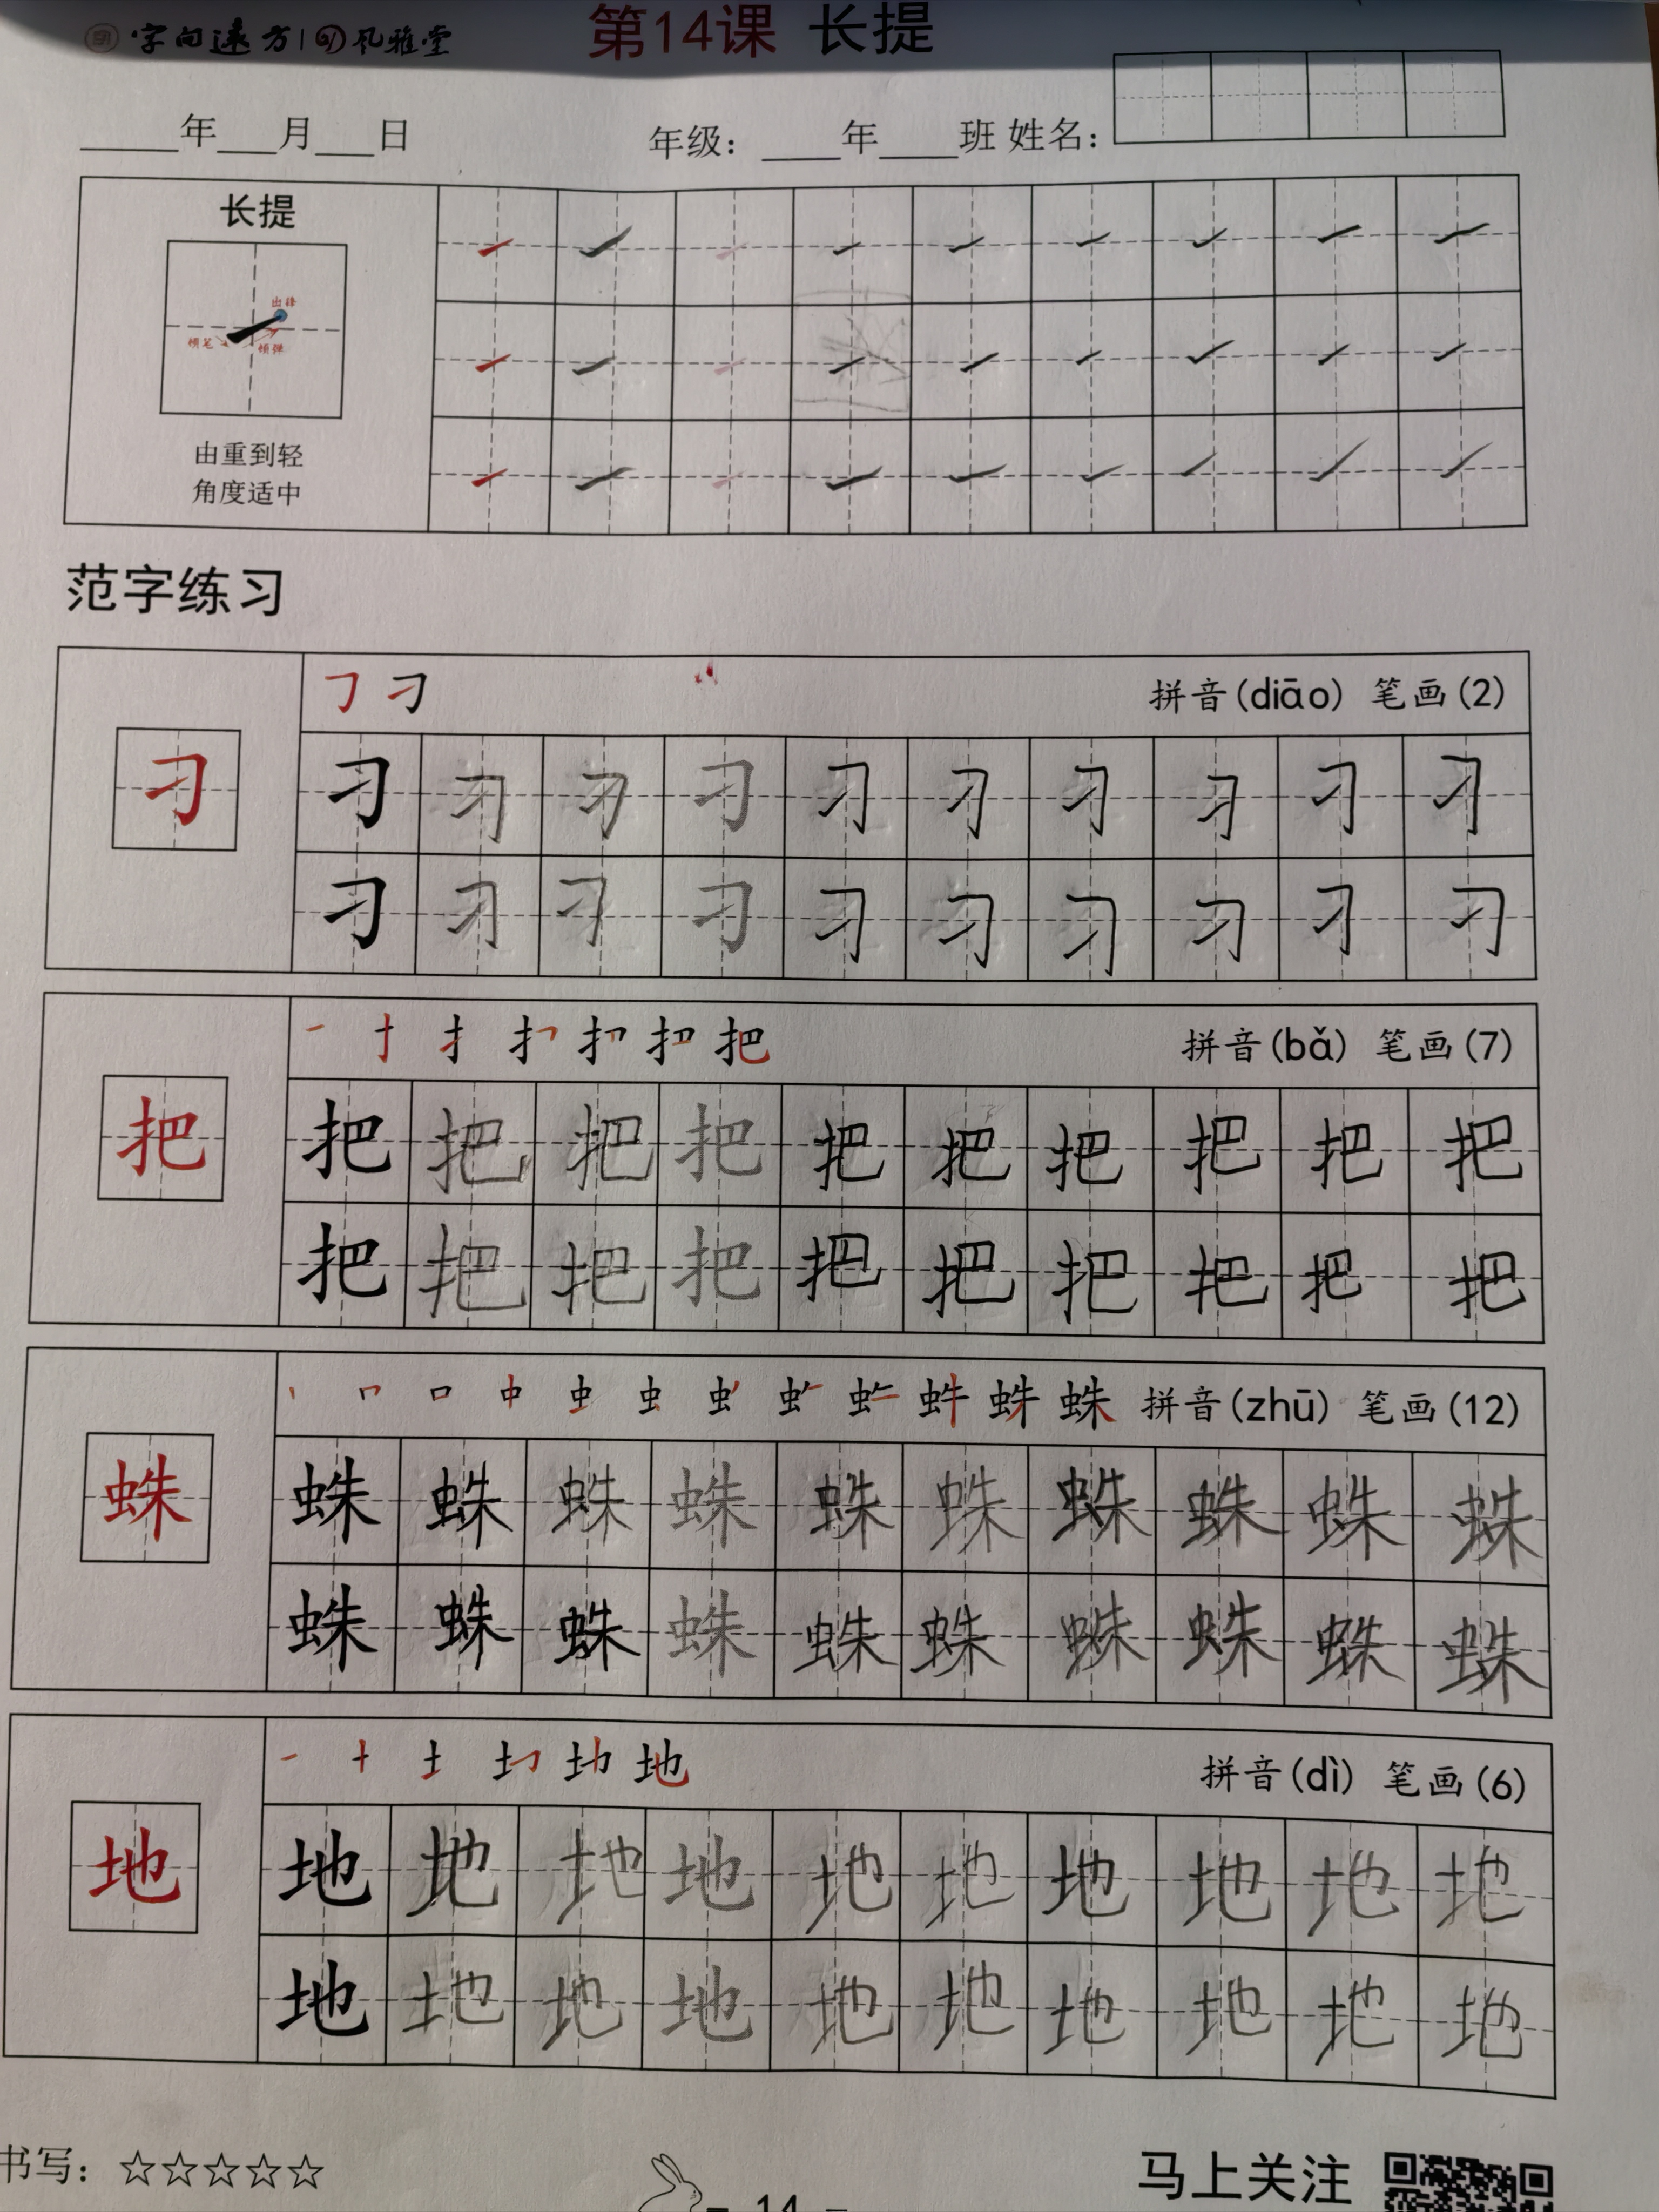 字向远方|风雅堂 第14课 长提
____年___月___日 年级：____年____班 姓名：
长提
出锋
顿笔 倾弹
由重到轻
角度适中
范字练习
刁 拼音(diāo) 笔画(2)
刁
刁 刁 刁 刁 刁 刁 刁 刁 刁 刁
刁 刁 刁 刁 刁 刁 刁 刁 刁 刁
把 拼音(bǎ) 笔画(7)
把
把 把 把 把 把 把 把 把 把 把
把 把 把 把 把 把 把 把 把 把
蛛 拼音(zhū) 笔画(12)
蛛
蛛 蛛 蛛 蛛 蛛 蛛 蛛 蛛 蛛 蛛
蛛 蛛 蛛 蛛 蛛 蛛 蛛 蛛 蛛 蛛
地 拼音(dì) 笔画(6)
地
地 地 地 地 地 地 地 地 地 地
地 地 地 地 地 地 地 地 地 地
书写：☆☆☆☆☆ – 14 – 马上关注